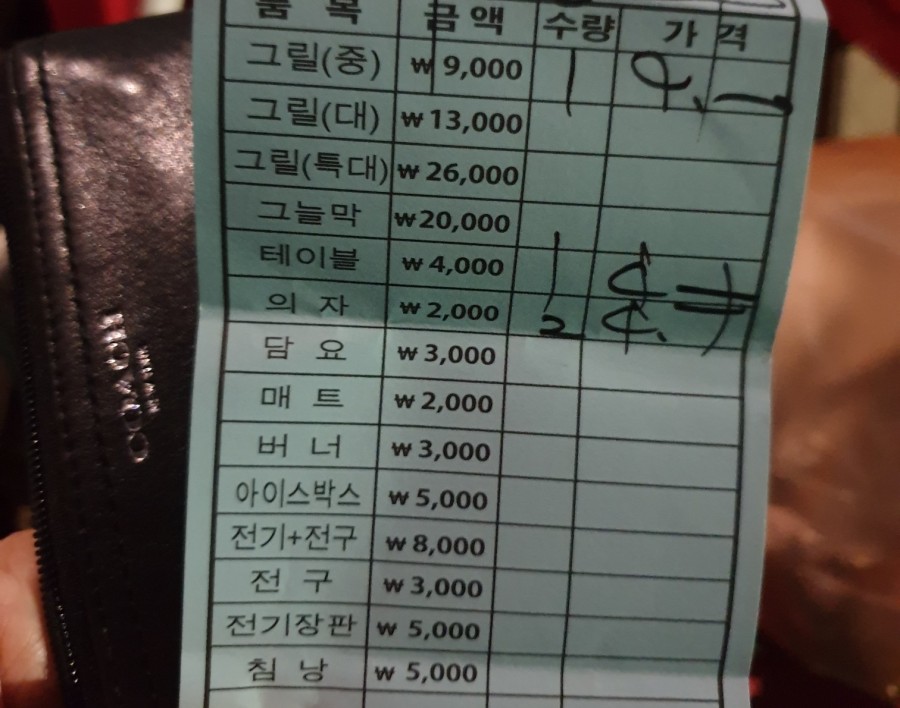 품 목 금액 수량 가 격
그릴(중) ₩ 9,000 1 9,-
그릴(대) ₩ 13,000
그릴(특대) ₩ 26,000
그늘막 ₩20,000
테이블 ₩ 4,000 1 4
의 자 ₩ 2,000 2 4.
담 요 ₩ 3,000
매 트 ₩ 2,000
버 너 ₩ 3,000
아이스박스 ₩ 5,000
전기+전구 ₩ 8,000
전 구 ₩ 3,000
전기장판 ₩ 5,000
침 낭 ₩ 5,000
COACH